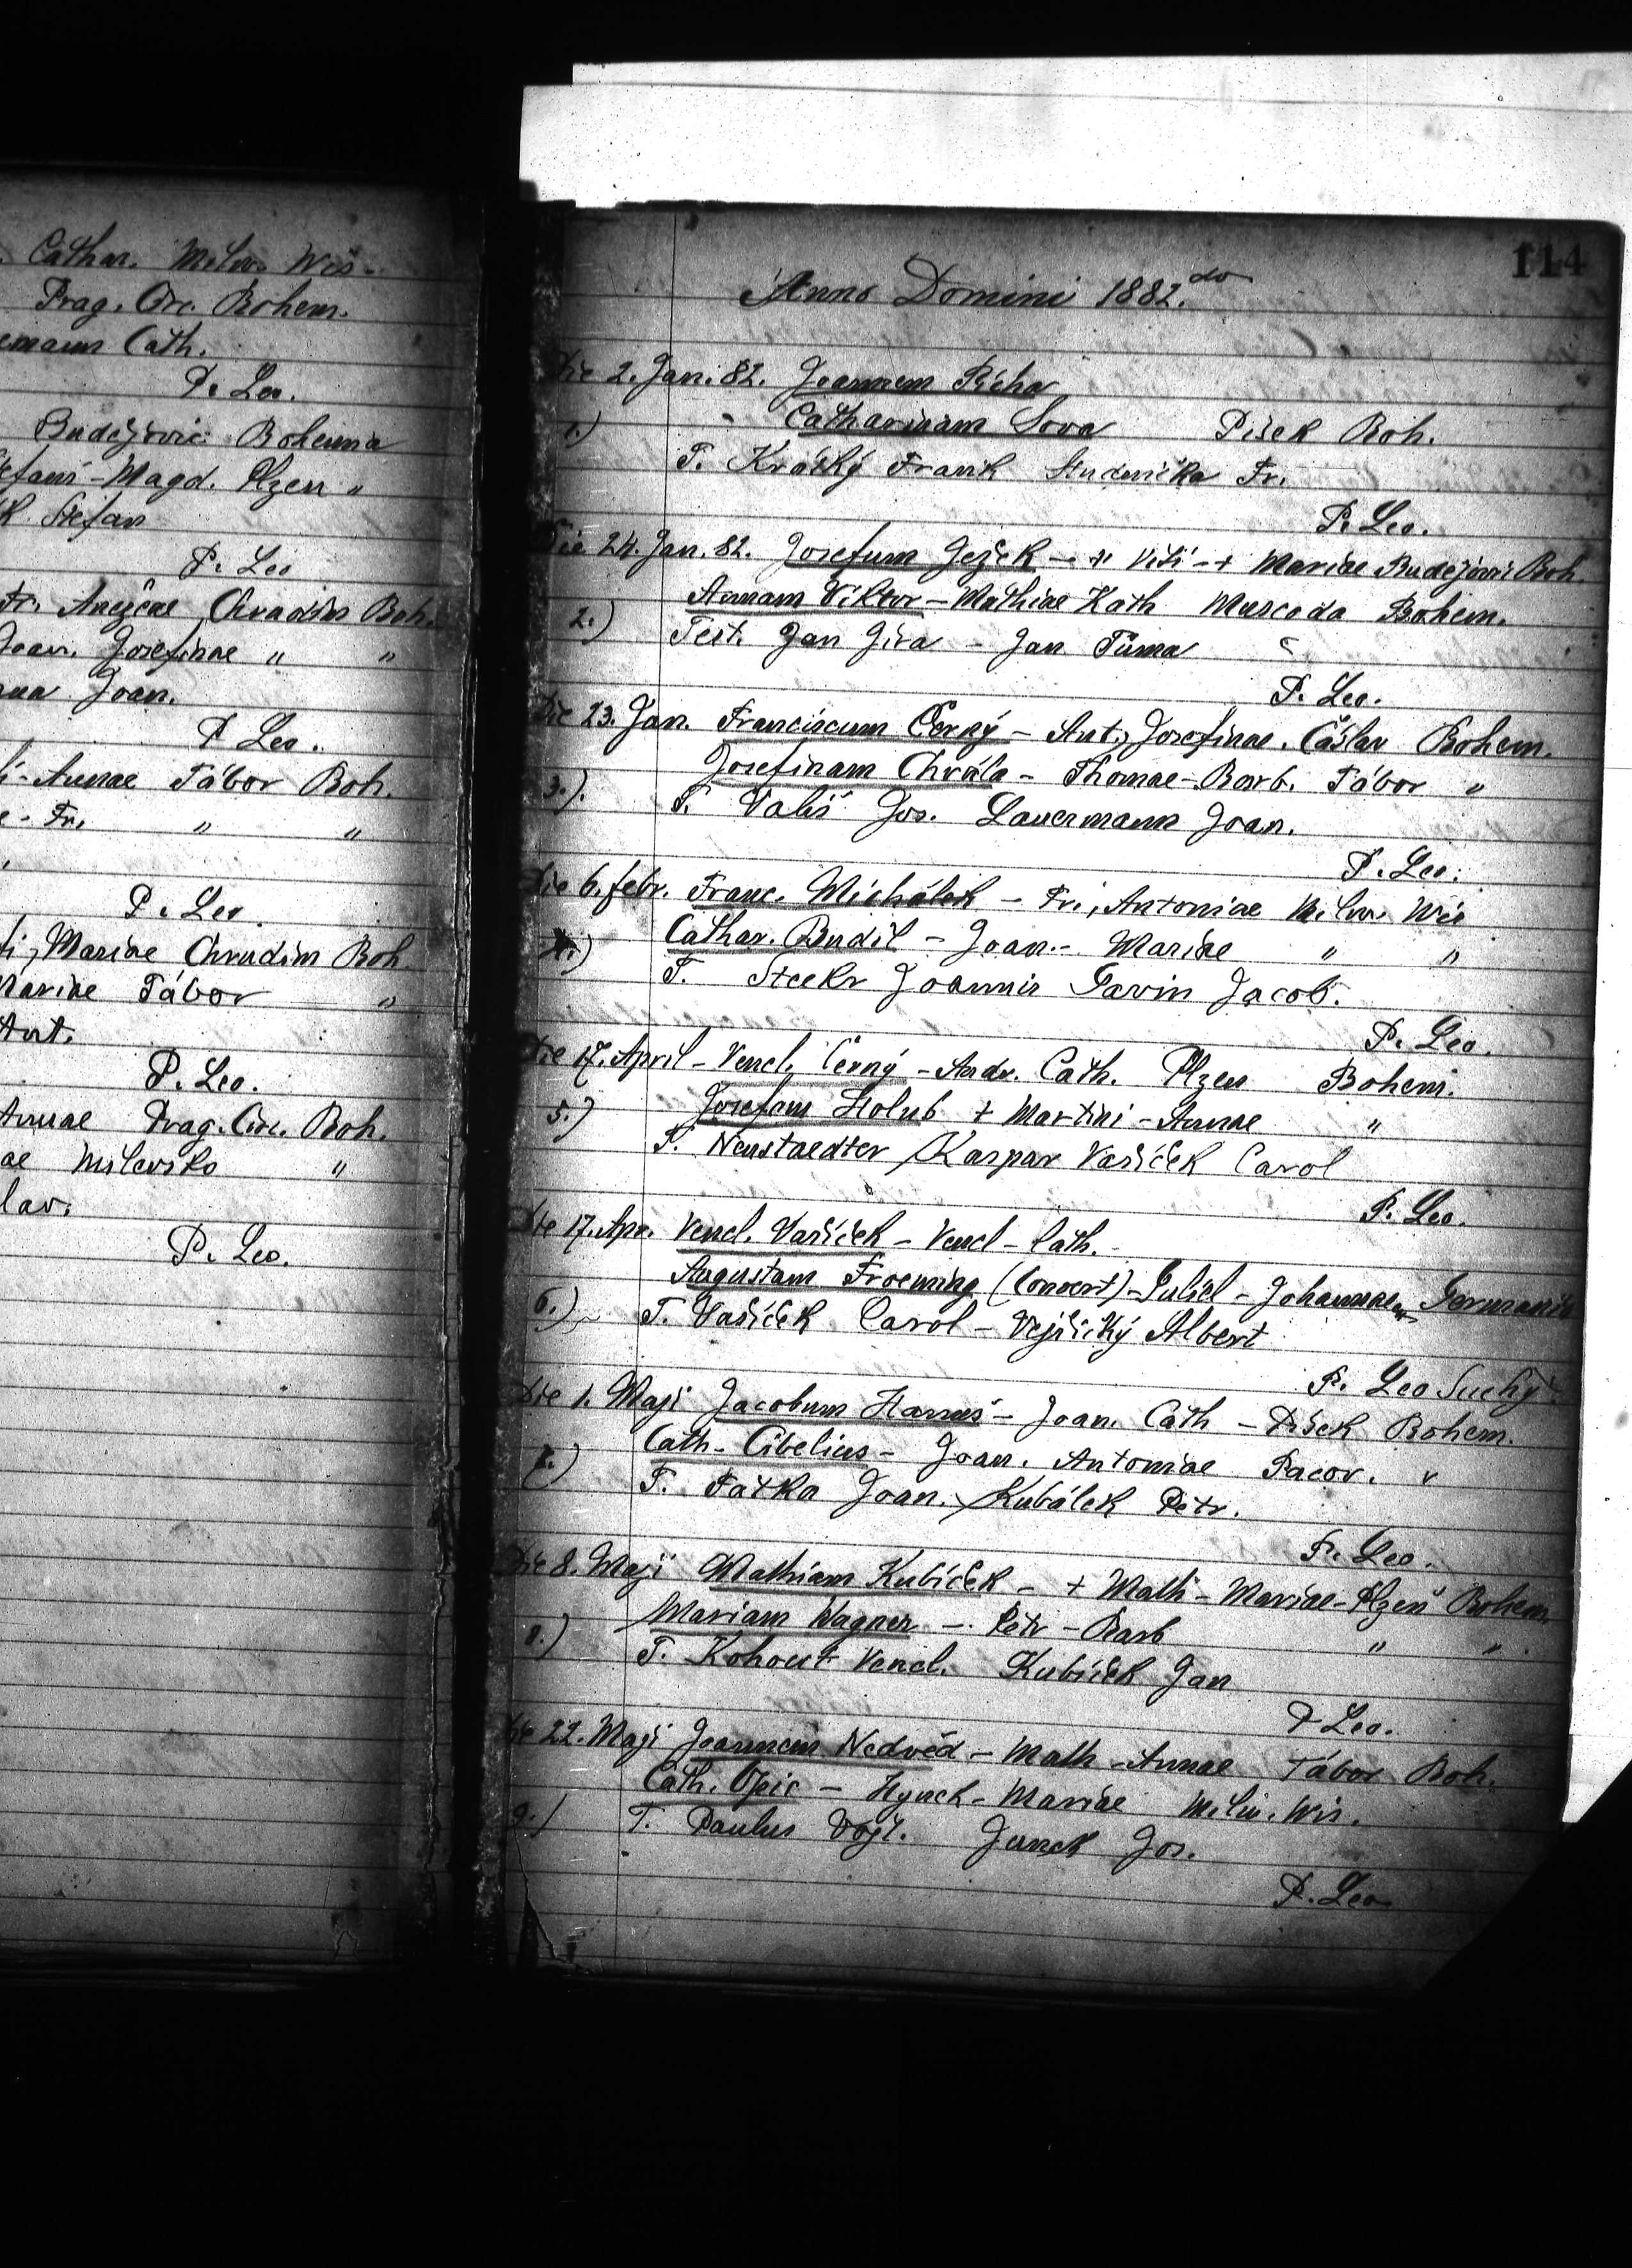 Cathar. Milw. Wis.
Prag. Circ. Bohem.
Cath.
P. Leo.
Budějovic Bohemia
Magd. Plzen "
Stefan
P. Leo
Fr. Chrudim Boh.
Joan. Josefinae " "
Joan.
P Leo.
Annae Tábor Boh.
- Fr. " "
P. Leo
Mariae Chrudim Boh.
Mariae Tábor "
Ant.
P. Leo.
Annae Prag. Circ. Boh.
ae Milevsko "
lav.
P. Leo.
114
Anno Domini 1882.do
Die 2. Jan. 82. Joannem Řicha
1.) Catharinam Sova Pisek Boh.
T. Krátký Frank Studnička Fr.
P. Leo.
Die 24. Jan. 82. Josefum Ježek - Viti - + Mariae Budějovic Boh.
Annam Viktor - Mathiae Kath Muscoda Bohem.
2.) Test. Jan Jira - Jan Tůma
P. Leo.
Die 23. Jan. Franciscum Černý - Ant., Josefinae. Čáslav Bohem.
Josefinam Chvála - Thomae - Barb. Tábor "
3.). T. Vališ Jos. Lauermann Joan.
P. Leo.
Die 6. febr. Franc. Michálek - Fr., Antoniae Milw. Wis
4.) Cathar. Budil - Joan. - Mariae " "
T. Steekr Joannis Pavin Jacob.
P. Leo.
Die 17. April - Vencl. Černý - Andr. Cath. Plzen Bohem.
5.) Josefam Holub + Martini - Annae "
T. Neustaedter Kaspar Vašíček Carol
P. Leo.
Die 17. Apr. Vencl. Vašíček - Vencl - Cath.
Augustam Froeming (Convert) - - Johannae Germania
6.) T. Vašíček Carol - Vejšický Albert
P. Leo Suchý
Die 1. Maji Jacobum Hanuš - Joan. Cath - Pisek Bohem.
7.) Cath. Cibelius - Joan. Antoniae Pacov. "
T. Fatka Joan. Kubálek Petr.
P. Leo.
Die 8. Maji Mathiam Kubíček - + Math - Mariae - Plzeň Bohem
8.) Mariam Wagner - Petr - Barb " "
T. Kohout Vencl. Kubíček Jan
P Leo.
Die 22. Maji Joannem Nedvěd - Math - Annae Tábor Boh.
Cath. Opic - Hynek - Mariae Milw. Wis.
9.) T. Paulus Vojt. Janek Jos.
P. Leo